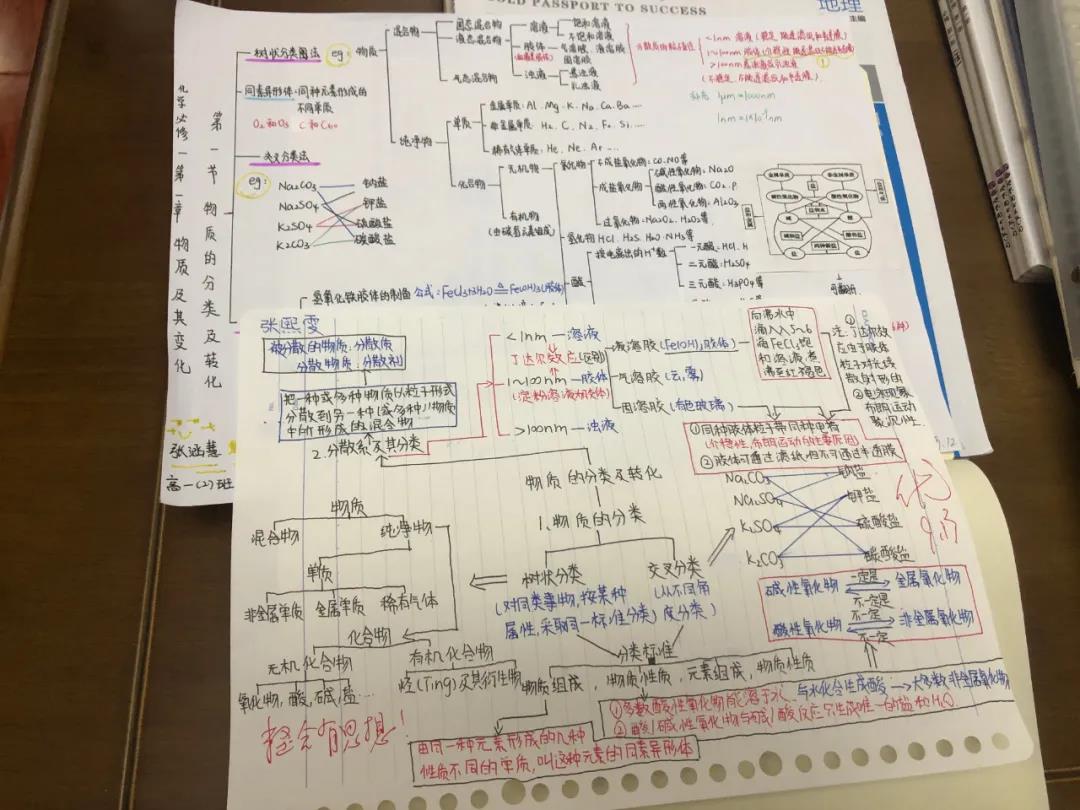 COLD PASSPORT TO SUCCESS
地理
主编
化学必修一第一章 物质及其变化
第一节 物质的分类及转化
树状分类图法
eg:
物质
混合物
固态混合物
液态混合物
气态混合物
溶液
饱和溶液
不饱和溶液
胶体
气溶胶、液溶胶
固溶胶
浊液
悬浊液
乳浊液
1μm=1000nm
同素异形体:同种元素形成的
不同单质
O₂和O₃ C和C₆₀
交叉分类法
eg:
Na₂CO₃
Na₂SO₄
K₂SO₄
K₂CO₃
钠盐
钾盐
硫酸盐
碳酸盐
纯净物
单质
金属单质: Al、Mg、K、Na、Ca、Ba……
非金属单质:
稀有气体单质: He、Ne、Ar……
化合物
无机物
氧化物
不成盐氧化物: CO、NO等
成盐氧化物
碱性氧化物: Na₂O
酸性氧化物: CO₂、P
两性氧化物: Al₂O₃
过氧化物: Na₂O₂、H₂O₂等
氢化物 HCl、H₂S、H₂O、NH₃等
有机物
酸
按电离出的H⁺数
一元酸: HCl、H
二元酸: H₂SO₄
三元酸: H₃PO₄等
氢氧化铁胶体的制备
张涵慧
高一(2)班
张熙雯
被分散的物质:分散质
分散物质:分散剂
把一种或多种物质以粒子形式
分散到另一种(或多种)物质
中所形成的混合物
2.分散系及其分类
<1nm—溶液
丁达尔效应(区别)
1~100nm—胶体
(淀粉溶液为胶体)
>100nm—浊液
液溶胶(Fe(OH)₃胶体)
气溶胶(云,雾)
固溶胶(有色玻璃)
向沸水中
滴入5~6
滴FeCl₃饱
和溶液煮
沸至红褐色
注:①丁达尔效
应由于胶体
粒子对光线
散射形成的
②电泳现象
布朗运动
聚沉
①同种胶体粒子带同种电荷
(介稳性,布朗运动的主要原因)
②胶体可通过滤纸但不可通过半透膜
物质的分类及转化
1.物质的分类
树状分类
(对同类事物,按某种
属性,采取同一标准分类)
交叉分类
(从不同角
度分类)
Na₂CO₃
Na₂SO₄
K₂SO₄
K₂CO₃
钠盐
钾盐
硫酸盐
碳酸盐
物质
混合物
纯净物
单质
非金属单质
金属单质
稀有气体
化合物
无机化合物
氧化物,酸,碱,盐…
有机化合物
烃(Ting)及其衍生物
分类标准
物质组成,物质性质,元素组成,物质性质
碱性氧化物
一定是
金属氧化物
不一定是
酸性氧化物
不一定
非金属氧化物
不一定
①多数酸性氧化物能溶于水,与水化合生成酸→大多数非金属氧化物
②酸/碱性氧化物与碱/酸反应只生成唯一的盐和H₂O
由同一种元素形成的几种
性质不同的单质,叫这种元素的同素异形体
整合有思想!